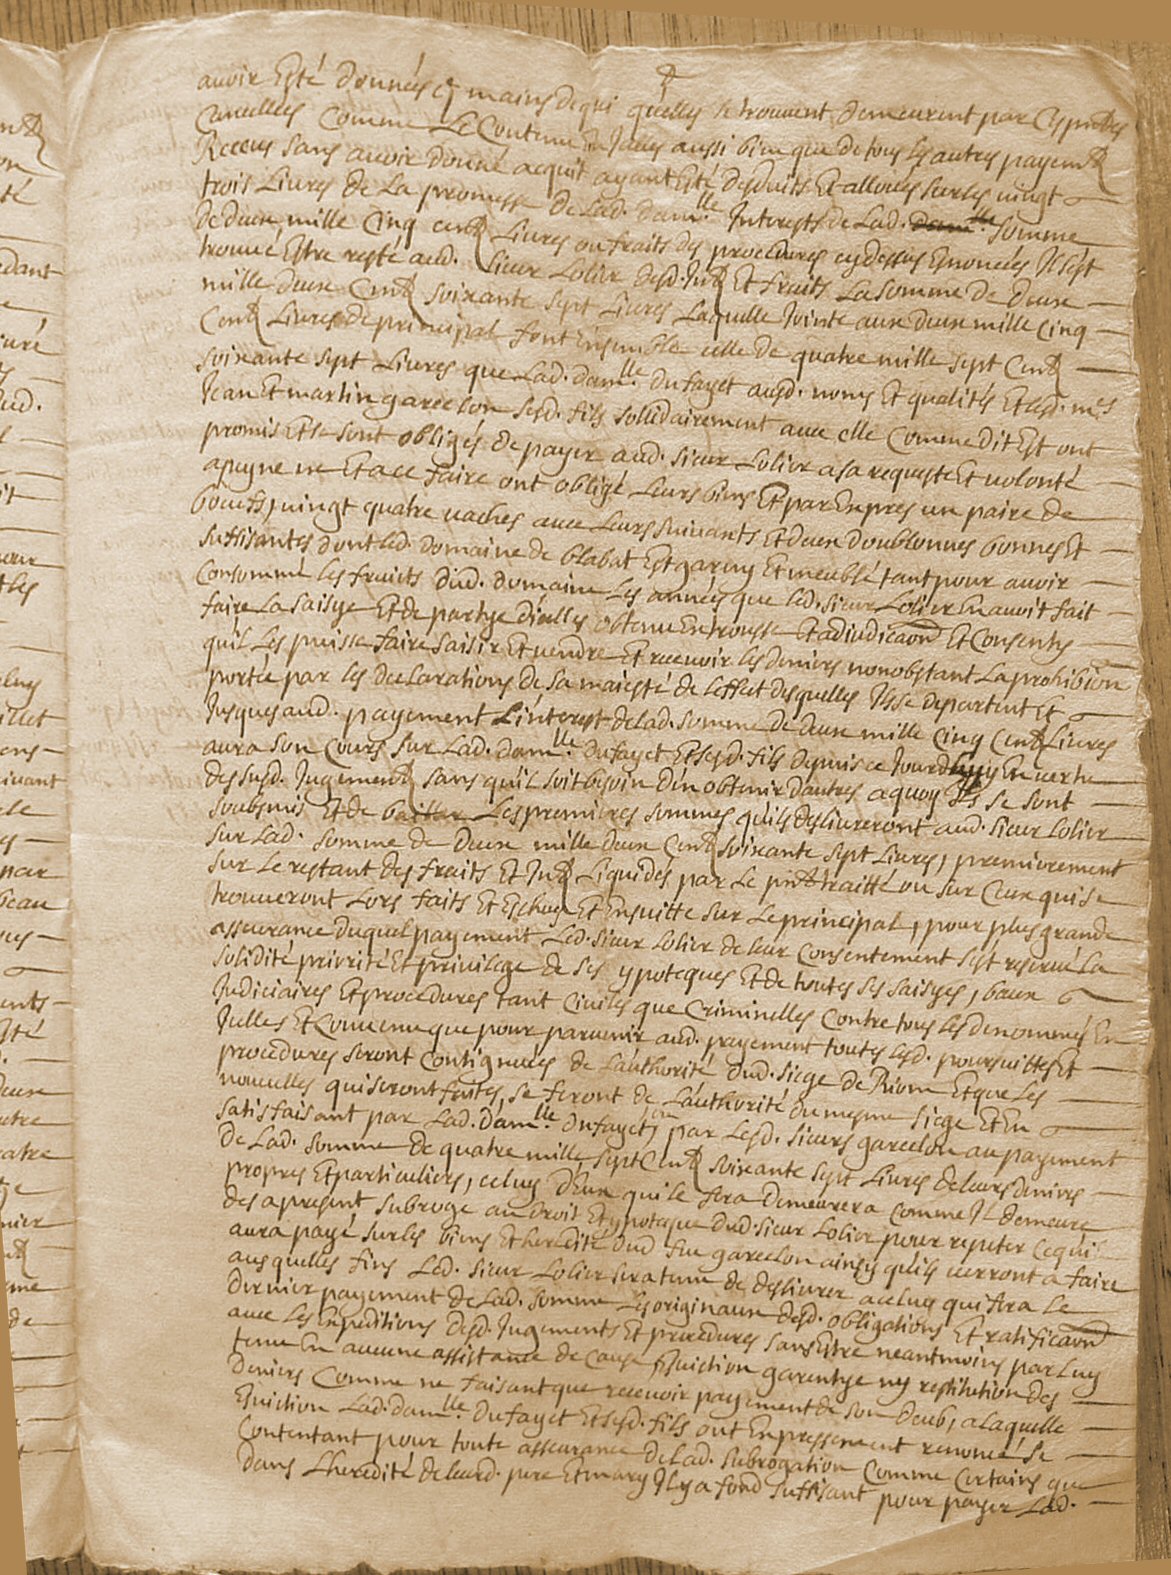 avoir Esté données Es mains de qui qu'elles se trouvent demeurent par Cy pntes
Cancellées Comme Le Contenu En Icelles aussi bien que de tous les autres payemts
Receus sans avoir donné acquit ayant Esté desduits Et alloués sur les vingt
trois Livres de La promesse de Lad. damlle Interests de Lad. somme
de deux mille Cinq cents Livres ou fraits des procedures cy dessus Enoncées Il s'est
trouvé Estre resté aud. sieur Lolier desd. Ints Et fraits La somme de deux
mille deux Cents soixante sept Livres Laquelle Jointe aux deux mille Cinq
Cents Livres de principal font Ensemble celle de quatre mille sept Cents
soixante sept Livres que Lad. damlle. du fayet ausd. noms Et qualités Et lesd. mes
Jean Et martin garcelon sesd. fils sollidairement avec elle Comme dit Est ont
promis Et se sont obligés de payer aud. sieur Lolier a sa requeste Et volonté
a peyne ne Et a ce faire ont obligé Leurs biens Et par Expres un paire de
boeufs, vingt quatre vaches avec Leurs suivants Et deux doublonnes bonnes Et
suffisantes dont led. domaine de blabat Est garny Et meublé tant pour avoir
Consommé les fruits dud. domaine Les années que led. sieur Lolier En avoit fait
faire La saisye Et de partye d'icelles obtenu En trousse Et adiudicaon Et Consents
qu'il Les puisse faire saisir Et vendre Et recevoir les deniers nonobstant La prohibion
portée par les declarations de sa maiesté de l'effect desquelles Ils se departent Et
Jusques aud. payement L'interest de Lad. somme de deux mille Cinq Cents Livres
aura son Cours sur Lad. damlle. du fayet Et sesd. fils depuis ce Jourdhuy En vertu
des susd. Jugements sans qu'il soit besoin d'en obtenir d'autres a quoy Ils se sont
soubsmis Et de Les premieres sommes qu'ils deslivreront aud. sieur Lolier
sur Lad. somme de deux mille deux Cents soixante sept Livres, premierement
sur Le restant des fraits Et Ints Liquidés par Le pnt traitté ou sur Ceux qui se
trouveront Lors faits Et Escheus Et Ensuitte sur Le principal, pour plus grande
asseurance duquel payement Led. sieur Lolier de leur Consentement s'est reservé La
solidité priorité Et privilege de ses ypoteques Et de toutes ses saisyes, baux
Judiciaires Et procedures tant Civiles que Criminelles Contre tous les denommés En
Icelles Et Convenu que pour parvenir aud. payement toutes lesd. poursuittes Et
procedures seront Contignuées de L'authorité dud. siege de Riom Et que Les
nouvelles qui seront faites, se feront de L'authorité du mesme siege Et En
satisfaisant par Lad. damlle. du fayet, ou par Lesd. sieurs garcelon au payement
de Lad. somme de quatre mille sept Cents soixante sept Livres de leurs deniers
propres Et particuliers, celuy d'Eux qui le fera demeurera Comme Il demeure
des a present subrogé au droit Et ypoteque dud. sieur Lolier pour repeter Ce qu'il
aura payé sur les biens Et heredité dud feu garcelon ainsy qu'ils verront a faire
ausquelles fins Led. sieur Lolier sera tenu de deslivrer a celuy qui fera Le
dernier payement de Lad. somme Les originaux desd. obligations Et ratificaon
avec Les Expeditions desd. Jugements Et procedures sans Estre neantmoins par Luy
tenu En aucune assistance de Cause, Eviction garentye ny restitution des
deniers Comme ne faisant que recevoir payement de son deub, a Laquelle
Eviction Lad. damlle. du fayet Et sesd. fils ont Expressement renoncé se
Contentant pour toute asseurance de Lad. subrogation Comme Certains que
dans L'heredité de leurd. pere Et mary Il y a fond suffisant pour payer Lad.